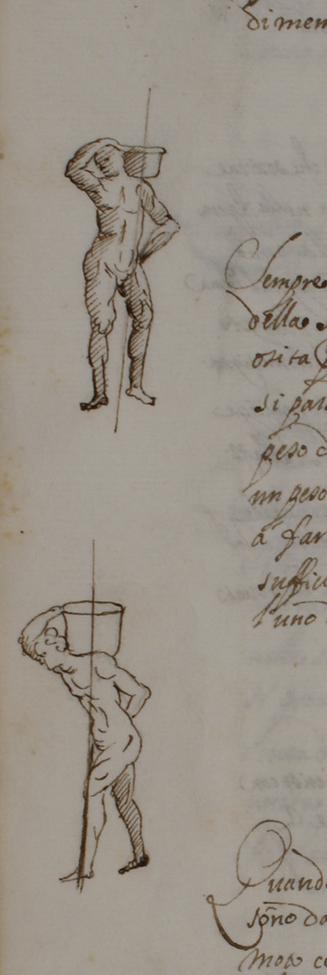 di mem
Sempre
della s
osita
si par
peso d
un peso
à far
suffici
l'uno
Quand
sono da
mod co